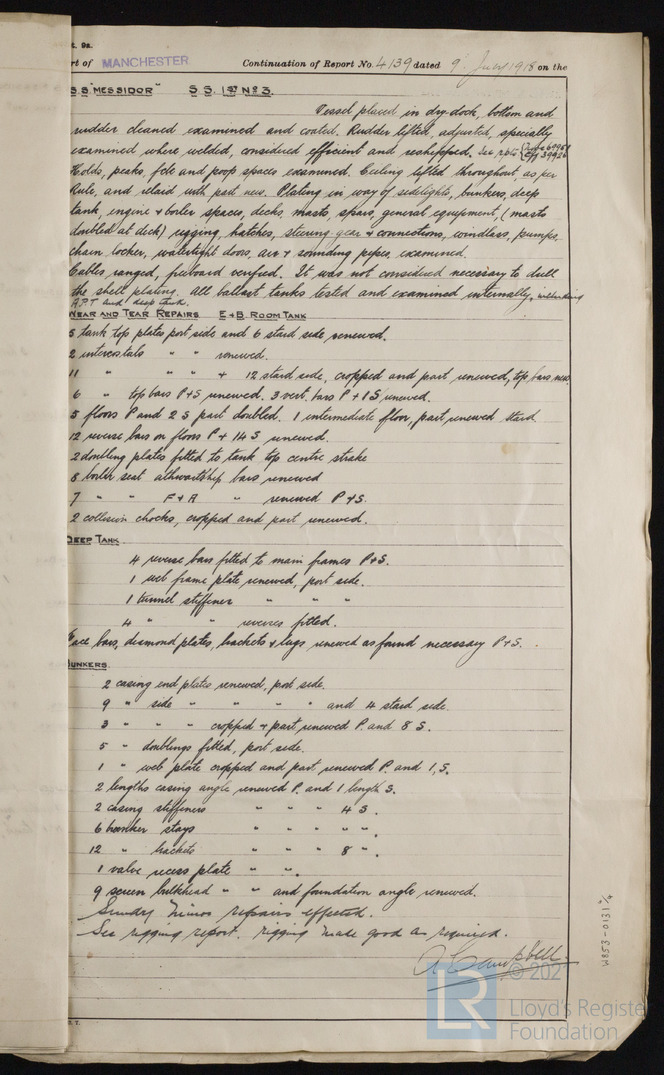 t. 9a.
rt of MANCHESTER Continuation of Report No. 4139 dated 9 July 1918 on the
S.S "MESSIDOR" S.S. 1ST No 3.
Vessel placed in dry dock, bottom and
rudder cleaned examined and coated. Rudder lifted, adjusted, specially
examined where welded, considered efficient and reshipped. See rpts
Holds, peaks, fcle and poop spaces examined. Ceiling lifted throughout, as per
Rule, and relaid with part new. Plating in way of sidelights, bunkers, deep
tank, engine & boiler spaces, decks, masts, spars, general equipment, (masts
doubled at deck) rigging, hatches, steering gear & connections, windlass, pumps,
chain locker, watertight doors, air & sounding pipes, examined.
Cables, ranged, freeboard verified. It was not considered necessary to drill
the shell plating. All ballast tanks tested and examined internally, including
A.P.T and deep tank.
WEAR AND TEAR REPAIRS E & B. ROOM TANK
5 tank top plates port side and 6 stard side renewed.
2 intercostals " " renewed.
11 " " " & 12 stard side, cropped and part renewed, top bars new
6 " top bars P & S renewed. 3 vert. bars P & 1 S renewed.
5 floors P and 2 S part doubled. 1 intermediate floor, part renewed stard
12 reverse bars on floors P & 14 S renewed.
2 doubling plates fitted to tank top centre strake
8 boiler seat athwartship bars renewed
7 " " F & A " renewed P & S.
2 collision chocks, cropped and part renewed.
DEEP TANK
4 reverse bars fitted to main frames P & S.
1 web frame plate renewed, port side.
1 tunnel stiffener " " "
4 " " reverses fitted.
Face bars, diamond plates, brackets & lugs renewed as found necessary P & S.
BUNKERS
2 casing end plates renewed, port side.
9 " side " " " " and 4 stard side
3 " " " cropped & part renewed P. and 8 S.
5 " doublings fitted, port side.
1 " web plate cropped and part renewed P. and 1, S.
2 lengths casing angle renewed P. and 1 length S.
2 casing stiffeners " " " 4 S.
6 bunker stays " " " " ".
12 " brackets " " " 8 ".
1 valve recess plate " ".
9 screen bulkhead " " and foundation angle renewed.
Sundry minor repairs effected.
See rigging report. rigging made good as required.
A Campbell
© 202
LR
Lloyd's Registe
Foundation
W853-0131 2/4
T. T.